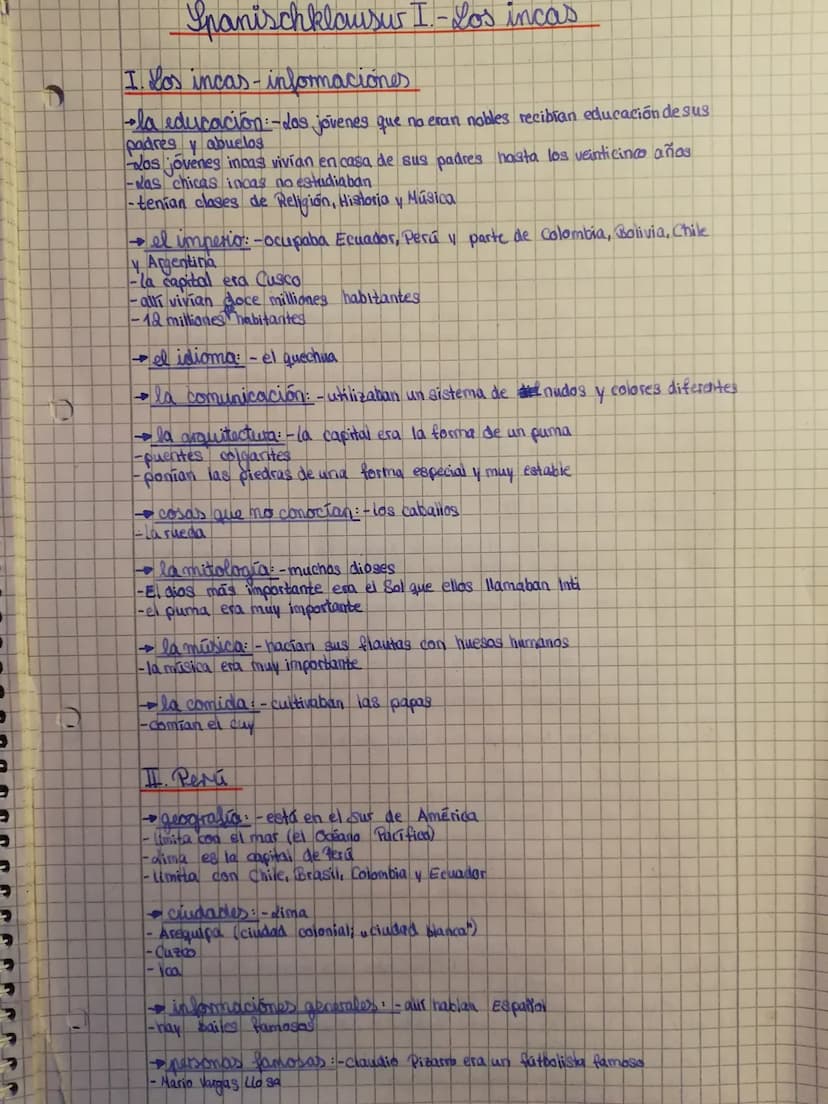 Spanischklausur I.-Los incas
I. Los incas-informaciónes
→la educación:-Los jóvenes que no eran nobles recibían educación de sus
padres y abuelos
-Los jóvenes incas vivían en casa de sus padres hasta los veinticinco años
-Las chicas incas no estudiaban
-tenían clases de Religión, Historia y Música
→el imperio:-ocupaba Ecuador, Perú y parte de Colombia, Bolivia, Chile
y Argentina
-la capital era Cusco
-allí vivían doce milliones habitantes
-12 milliones habitantes
→el idioma:-el quechua
→la comunicación:-utilizaban un sistema de nudos y colores diferentes
→la arquitectura:-la capital era la forma de un puma
-puentes colgantes
-ponían las piedras de una forma especial y muy estable
→cosas que no conocían:-los caballos
-la rueda
→la mitología:-muchos dioses
-El dios más importante era el Sol que ellos llamaban Inti
-el puma era muy importante
→la música:-hacían sus flautas con huesas humanos
-la música era muy importante
→la comida:-cultivaban las papas
-comían el cuy
II. Perú
→geografía:-está en el sur de América
-limita con el mar (el Océano Pacífico)
-Lima es la capital de Perú
-limita con Chile, Brasil, Colombia y Ecuador
→ciudades:-Lima
-Arequipa (ciudad colonial; „ciudad blanca")
-Cuzco
-Ica
→informaciónes generales:-allí hablan Español
-hay bailes famosas
→personas famosas:-claudio Pizarro era un futbolista famoso
-Mario Vargas Llosa